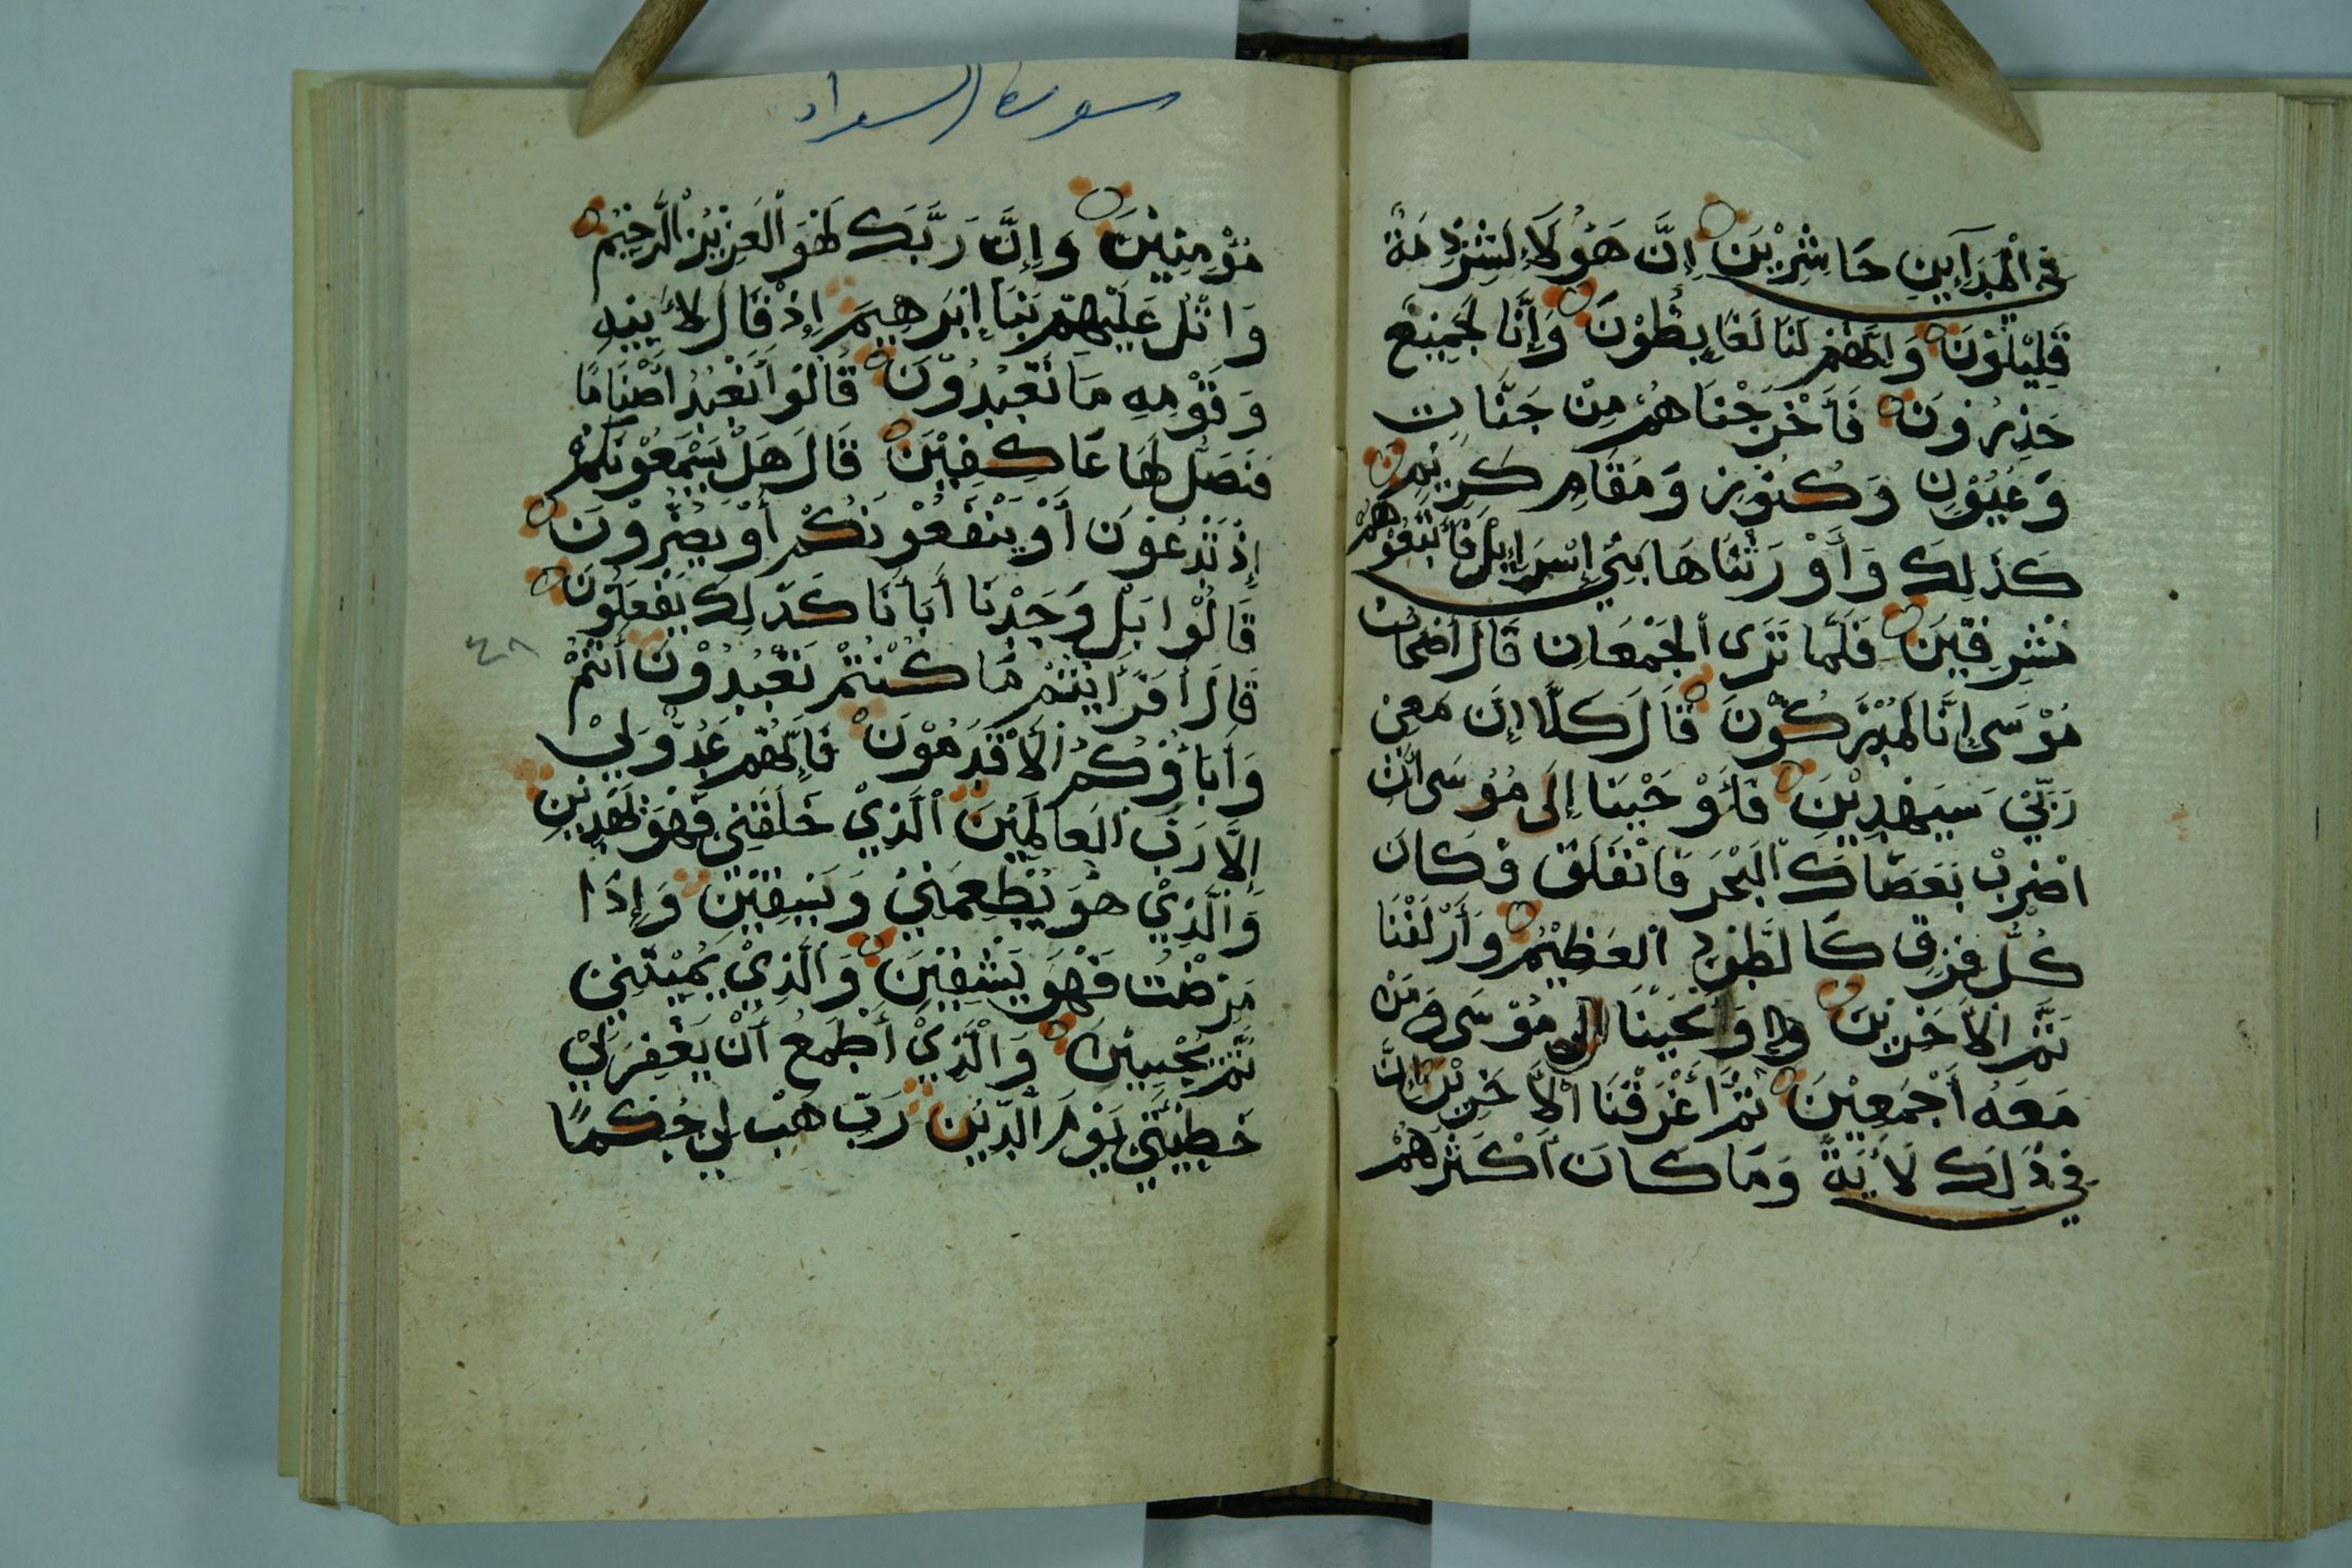 في ٱلْمَدَآيِنِ حَاشِرِيْنَ إِنَّ هَؤُلَاءِ لَشِرْذِمَةٌ
قَلِيْلُوْنَ وَإِنَّهُمْ لَنَا لَغَايِظُوْنَ وَإِنَّا لَجَمِيْعٌ
حَذِرُوْنَ فَأَخْرَجْنَاهُمْ مِنْ جَنَّاتٍ
وَعُيُوْنٍ وَكُنُوْزٍ وَمَقَامٍ كَرِيْمٍ
كَذَلِكَ وَأَوْرَثْنَاهَا بَنِي إِسْرَاإِيْلَ فَأَتْبَعُوْهُمْ
مُشْرِقِيْنَ فَلَمَّا تَرَى ٱلجَمْعَانِ قَالَ أَصْحَابُ
مُوْسَى إِنَّا لَمُدْرَكُوْنَ قَالَ كَلَّا إِنَّ مَعِيْ
رَبِّيْ سَيَهْدِيْنِ فَأَوْحَيْنَا إِلَى مُوْسَى أَنِ
اضْرِبْ بِعَصَاكَ ٱلبَحْرَ فَانْفَلَقَ فَكَانَ
كُلُّ فِرْقٍ كَالطَّوْدِ ٱلعَظِيْمِ وَأَزْلَفْنَا
ثَمَّ الأَخَرِيْنَ وَأَنْجَيْنَا مُوْسَى وَمَنْ
مَعَهُ أَجْمَعِيْنَ ثُمَّ أَغْرَقْنَا ٱلأَخَرِيْنَ إِنَّ
فِي ذَلِكَ لَأَيَةً وَمَا كَانَ أَكْثَرُهُمْ
سورة الشعراء
مُؤْمِنِيْنَ وَإِنَّ رَبَّكَ لَهُوَ ٱلعَزِيْزُ ٱلرَّحِيْمُ
وَاتْلُ عَلَيْهِمْ نَبَأَ إِبْرَهِيمَ إِذْ قَالَ لِأَبِيْهِ
وَقَوْمِهِ مَا تَعْبُدُوْنَ قَالُوْا نَعْبُدُ أَصْنَامًا
فَنَضَلُّ لَهَا عَاكِفِيْنَ قَالَ هَلْ يَسْمَعُوْنَكُمْ
إِذْ تَدْعُوْنَ أَوْ يَنْفَعُوْنَكُمْ أَوْ يَضُرُّوْنَ
قَالُوْا بَلْ وَجَدْنَا أَبَأَنَا كَذَلِكَ يَفْعَلُوْنَ
قَالَ أَفَرَأَيْتُمْ مَا كُنْتُمْ تَعْبُدُوْنَ أَنْتُمْ
وَأَبَاؤُكُمُ ٱلأَقْدَمُوْنَ فَإِنَّهُمْ عَدُوٌّ لِيْ
إِلَّا رَبَّ ٱلعَالَمِيْنَ ٱلَّذِيْ خَلَقَنِي فَهُوَ يَهْدِيْنِ
وَٱلَّذِيْ هُوَ يُطْعِمُنِيْ وَيَسْقِيْنِ وَإِذَا
مَرِضْتُ فَهُوَ يَشْفِيْنِ وَٱلَّذِيْ يُمِيْتُنِيْ
ثُمَّ يُحْيِيْنِ وَٱلَّذِيْ أَطْمَعُ أَنْ يَغْفِرَ لِيْ
خَطِيْئَتِيْ يَوْمَ ٱلدِّيْنِ رَبِّ هَبْ لِيْ حُكْمًا